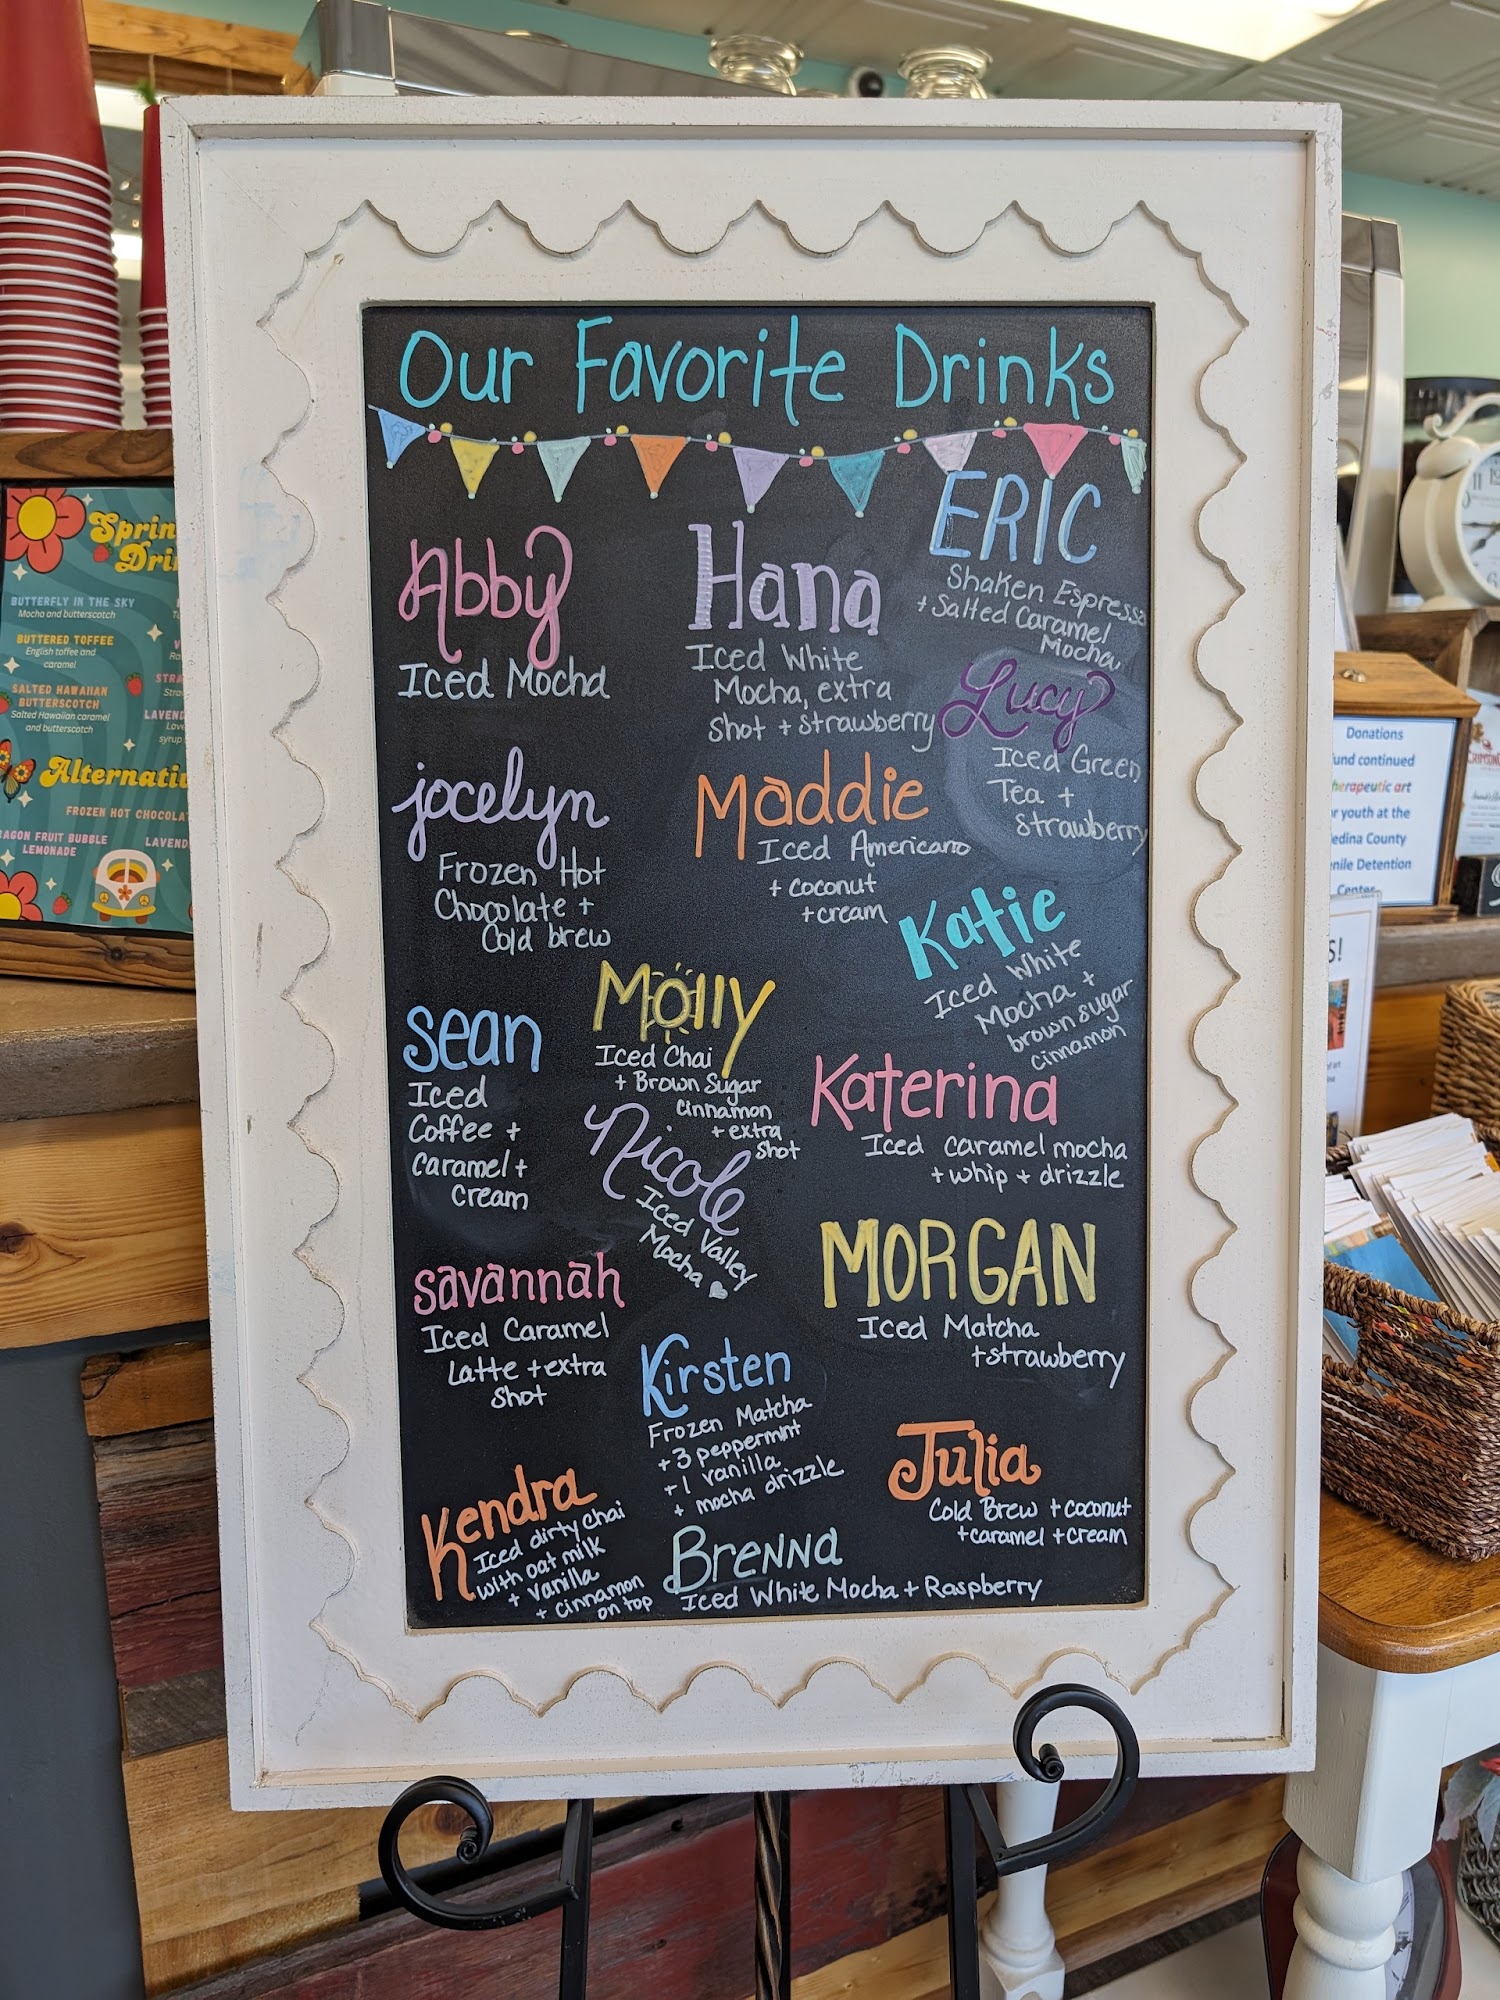 Our Favorite Drinks
Abby
Iced Mocha
Hana
Iced White
Mocha, extra
Shot + strawberry
ERIC
Shaken Espresso
+ Salted Caramel
Mocha
Lucy
Iced Green
Tea +
strawberry
jocelyn
Frozen Hot
Chocolate +
Cold brew
Maddie
Iced Americano
+ coconut
+ cream
Katie
Iced White
Mocha +
brown sugar
cinnamon
Sean
Iced
Coffee +
caramel +
Cream
Molly
Iced Chai
+ Brown Sugar
Cinnamon
+ extra
Shot
Nicole
Iced Valley
Mocha
Katerina
Iced caramel mocha
+ whip + drizzle
Savannah
Iced Caramel
Latte + extra
Shot
MORGAN
Iced Matcha
+ strawberry
Kirsten
Frozen Matcha
+ 3 peppermint
+ 1 vanilla
+ mocha drizzle
Julia
Cold Brew + coconut
+ caramel + cream
Kendra
Iced dirty chai
with oat milk
+ vanilla
+ cinnamon
on top
Brenna
Iced White Mocha + Raspberry
BUTTERFLY IN THE SKY
Mocha and butterscotch
BUTTERED TOFFEE
English toffee and
caramel
SALTED HAWAIIAN
BUTTERSCOTCH
Salted Hawaiian caramel
and butterscotch
FROZEN HOT
FRUIT BUBBLE
LEMONADE
Donations
continued
art
youth at the
County
Detention
11